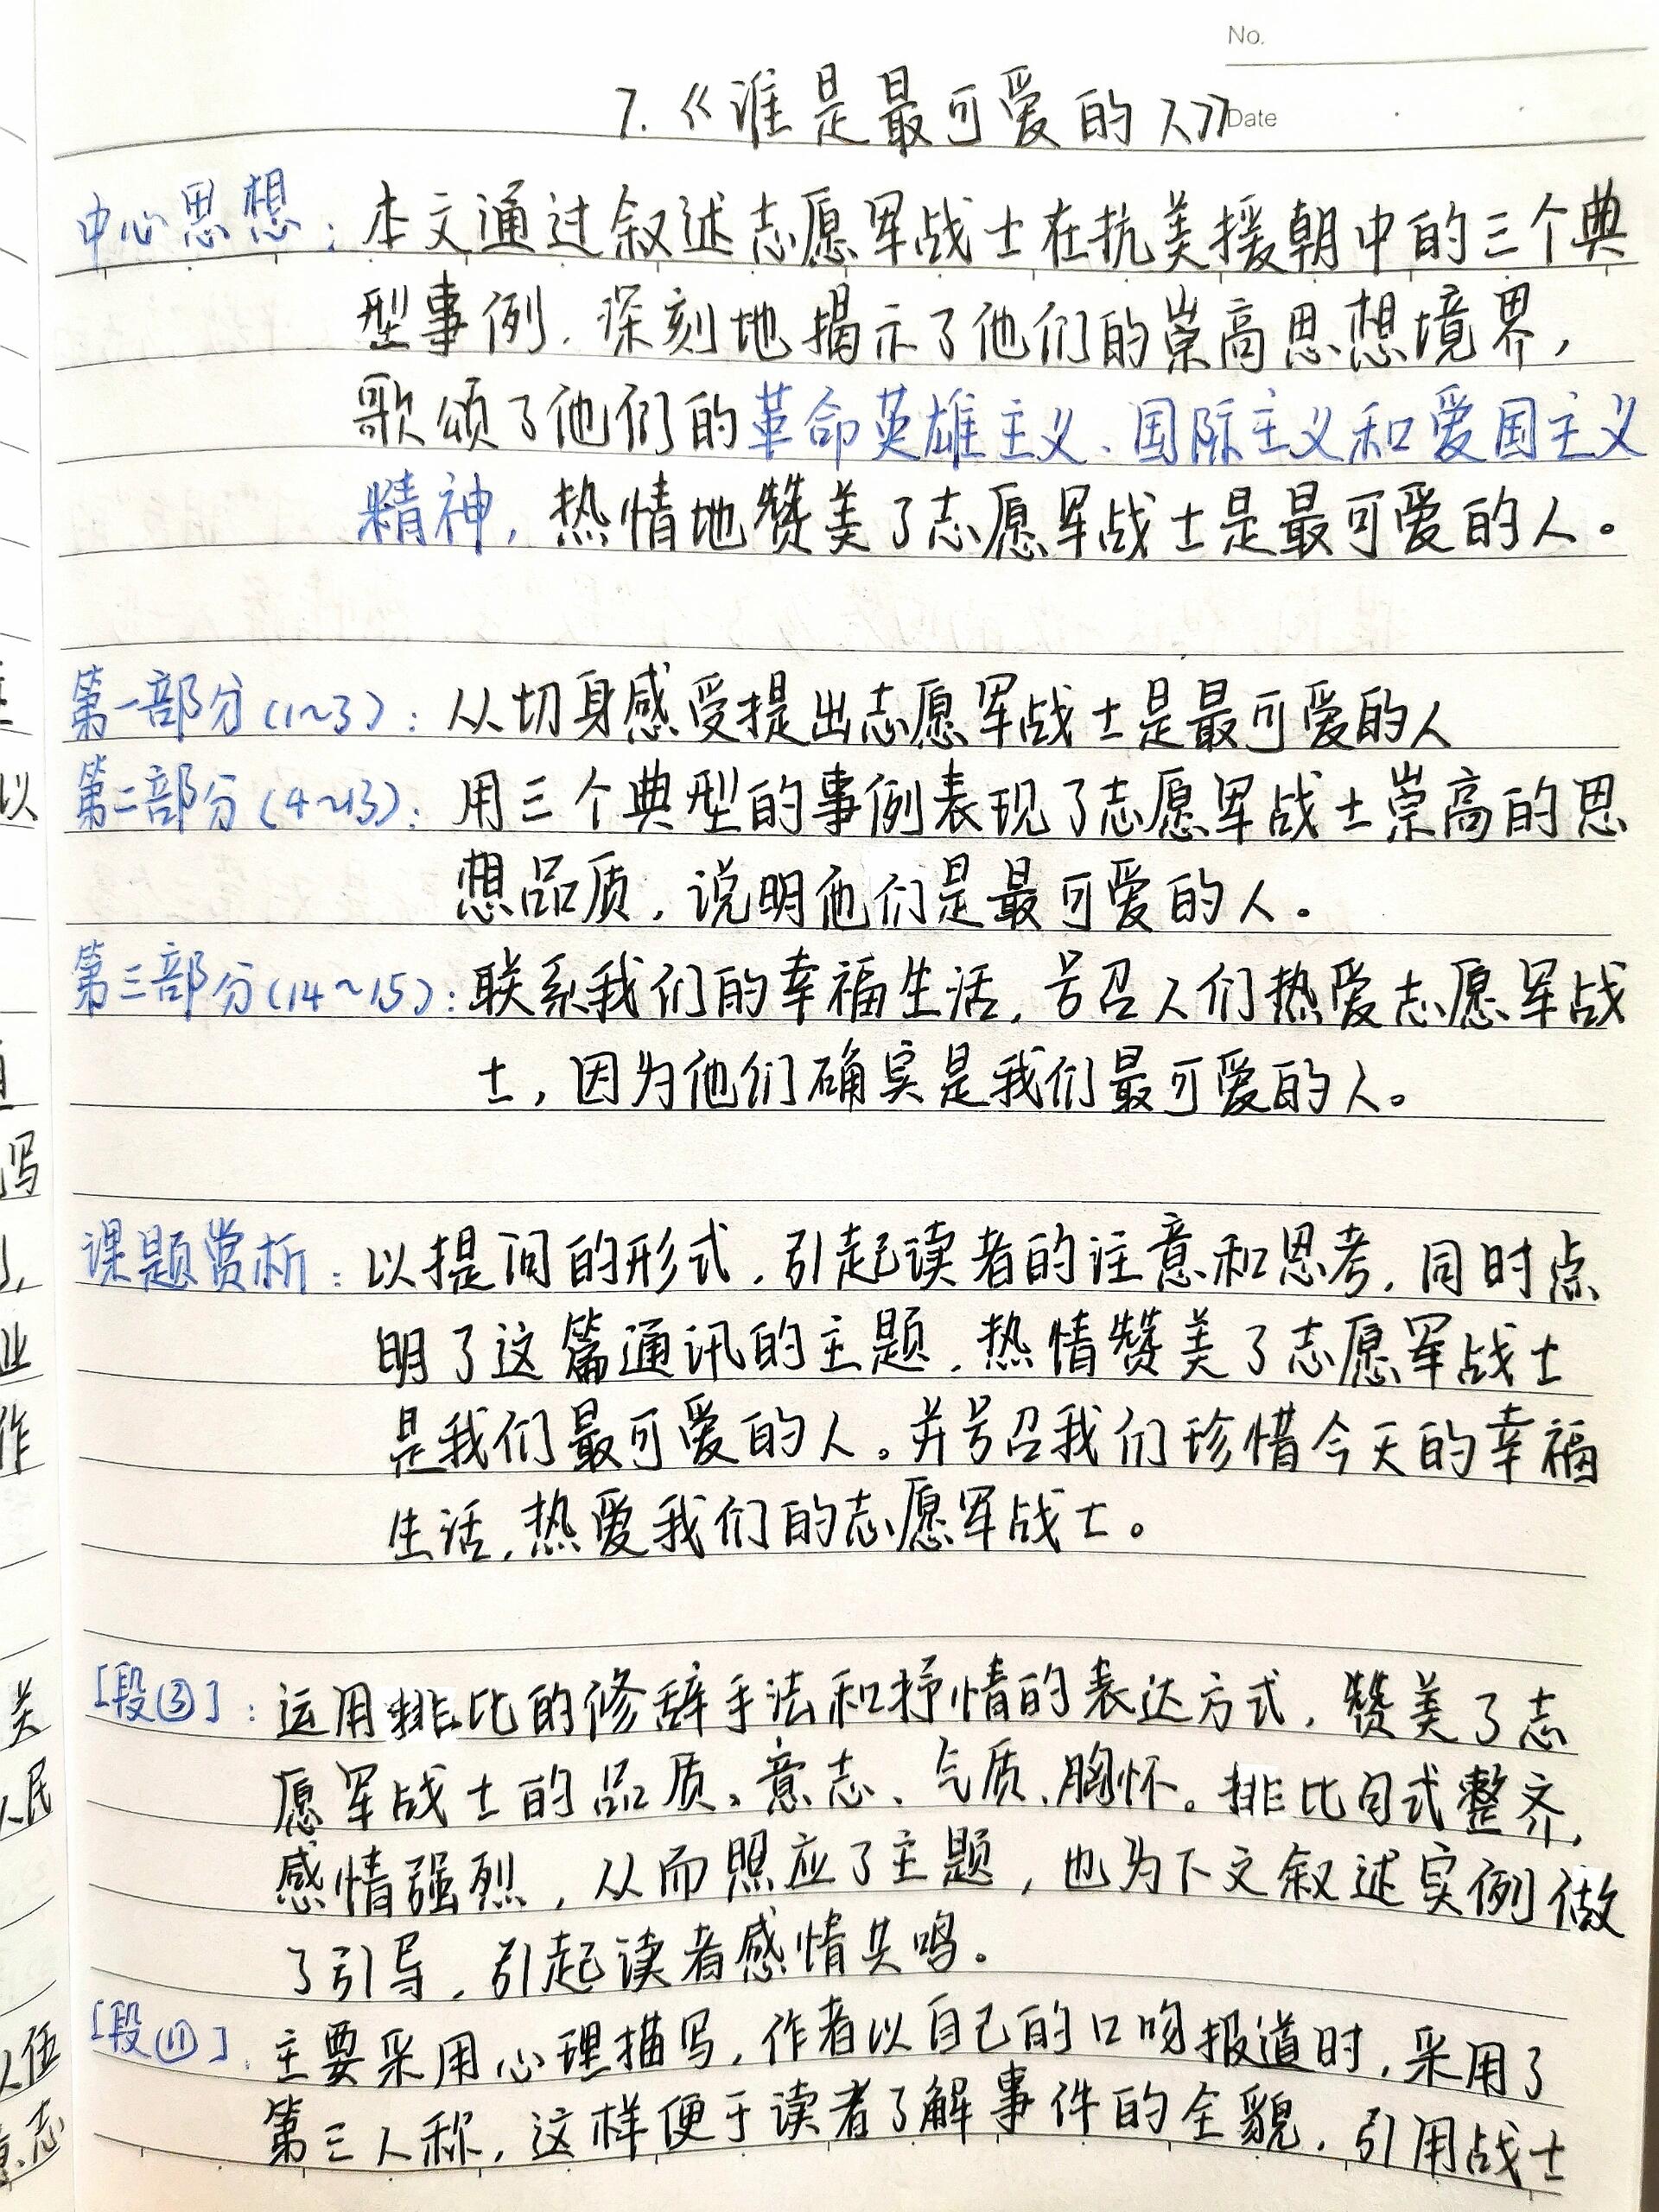 No.
7.《谁是最可爱的人》
Date
中心思想：本文通过叙述志愿军战士在抗美援朝中的三个典
型事例，深刻地揭示了他们的崇高思想境界，
歌颂了他们的革命英雄主义、国际主义和爱国主义
精神，热情地赞美了志愿军战士是最可爱的人。
第一部分(1~3)：从切身感受提出志愿军战士是最可爱的人
第二部分(4~13)：用三个典型的事例表现了志愿军战士崇高的思
想品质，说明他们是最可爱的人。
第三部分(14~15)：联系我们的幸福生活，号召人们热爱志愿军战
士，因为他们确实是我们最可爱的人。
课题赏析：以提问的形式，引起读者的注意和思考，同时点
明了这篇通讯的主题，热情赞美了志愿军战士
是我们最可爱的人。并号召我们珍惜今天的幸福
生活，热爱我们的志愿军战士。
[段③]：运用排比的修辞手法和抒情的表达方式，赞美了志
愿军战士的品质、意志、气质、胸怀。排比句式整齐，
感情强烈，从而照应了主题，也为下文叙述实例做
了引导，引起读者感情共鸣。
[段⑪]：主要采用心理描写，作者以自己的口吻报道时，采用了
第三人称，这样便于读者了解事件的全貌，引用战士
以
写
业
作
关
人民
人伍
意志